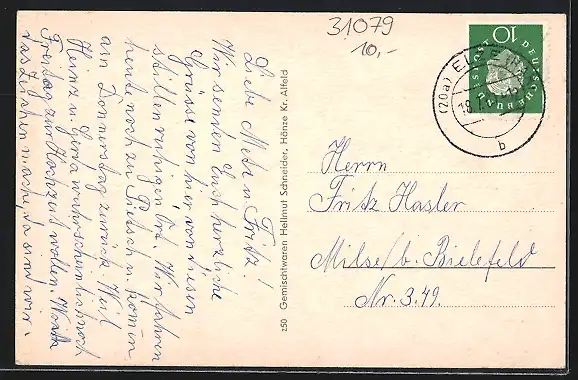 31079
10,-
Liebe Meta u. Fritz!
Wir senden Euch herzliche
Grüsse von hier, von diesen
stillen ruhigen Ort. Wir fahren
heute noch zu Pietsch u. kommen
am Donnerstag zurück. Weil
Heinz u. Gerda wahrscheinlich noch
Freitag zur Hochzeit wollen.
das Zeichen mache, da sind wir
250 Gemischtwaren Hellmut Schneider, Hönze Kr. Alfeld
10
DEUTSCHE BUNDESPOST
(20a)
b
Herrn
Fritz Hasler
Milse/b. Bielefeld
Nr. 3.49.